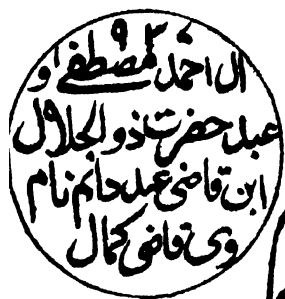 ۹۳۷
ال احمد مصطفے او
عبد حضرت ذو الجلال
ابن قاضی عبد حاتم نام
وی قاضی کمال